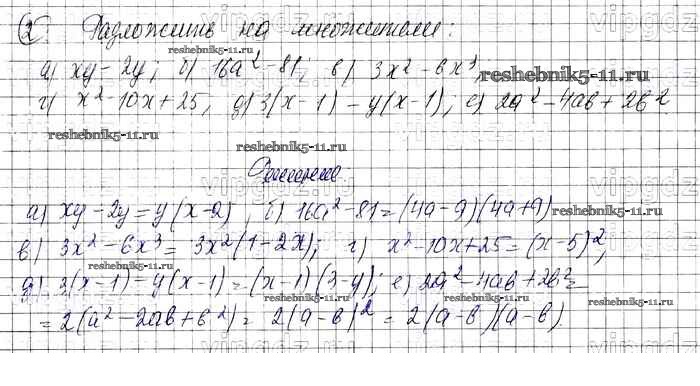 2 Разложить на множители:
а) xy - 2y; б) 16a² - 81; в) 3x² - 6x³;
г) x² - 10x + 25; д) 3(x - 1) - y(x - 1); е) 2a² - 4ab + 2b².
Решение
а) xy - 2y = y(x - 2); б) 16a² - 81 = (4a - 9)(4a + 9)
в) 3x² - 6x³ = 3x²(1 - 2x); г) x² - 10x + 25 = (x - 5)²;
д) 3(x - 1) - y(x - 1) = (x - 1)(3 - y); е) 2a² - 4ab + 2b² =
= 2(a² - 2ab + b²) = 2(a - b)² = 2(a - b)(a - b).
reshebnik5-11.ru
reshebnik5-11.ru
reshebnik5-11.ru
reshebnik5-11.ru
reshebnik5-11.ru
reshebnik5-11.ru
reshebnik5-11.ru
reshebnik5-11.ru
reshebnik5-11.ru
vipgdz
vipgdz.ru